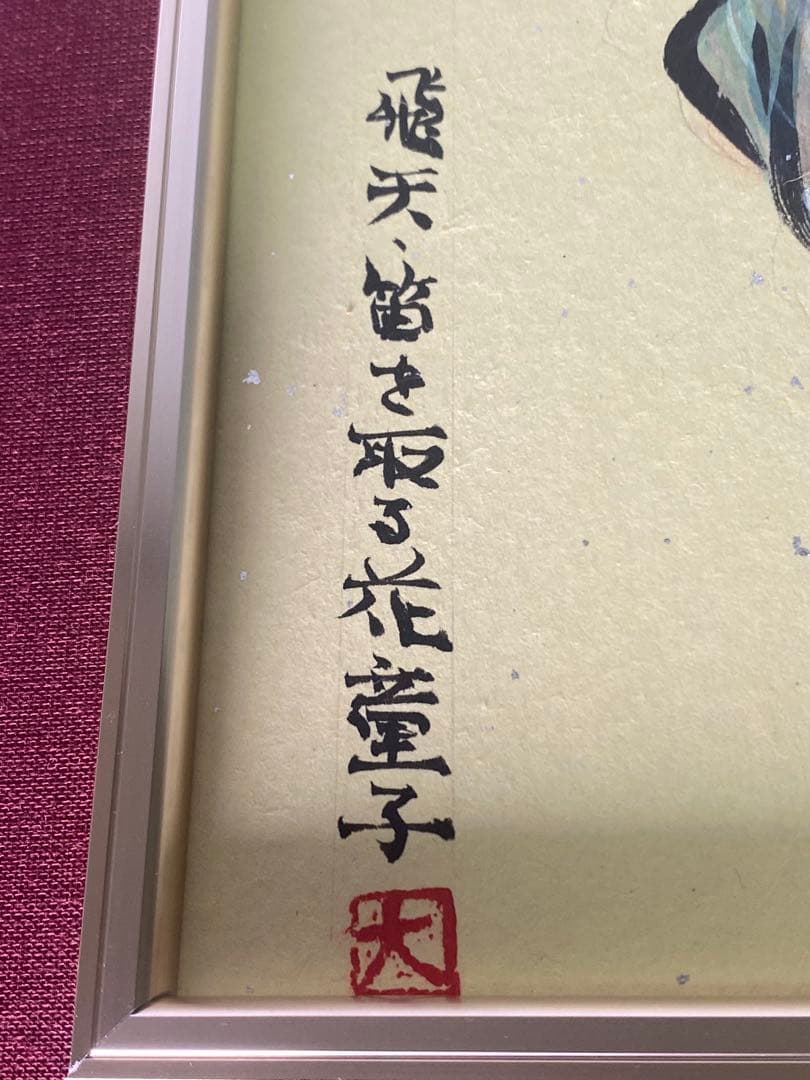 飛天、笛を取る花童子
大